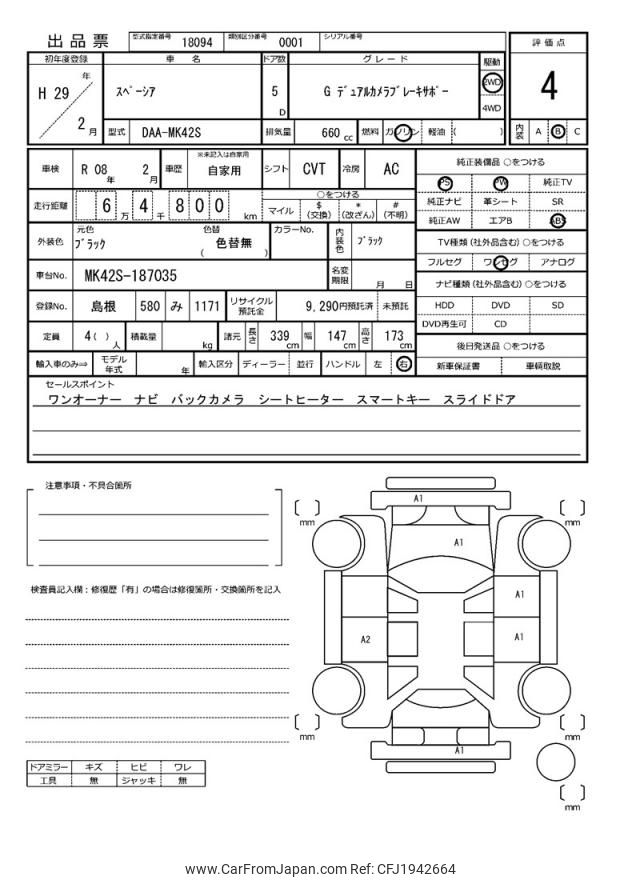 出品票 型式指定番号 18094 類別区分番号 0001 シリアル番号
初年度登録 車名 ドア数 グレード 駆動 評価点
H 29 年 2 月 スペーシア 5 D G デュアルカメラブレーキサポー 2WD 4WD 4
型式 DAA-MK42S 排気量 660 cc 燃料 ガソリン 軽油 ( ) 内装 A B C
車検 R 08 年 2 月 車歴 ※未記入は自家用 自家用 シフト CVT 冷房 AC
走行距離 6 万 4 千 8 0 0 km ○をつける マイル $ (交換) * (改ざん) # (不明)
外装色 元色 ブラック 色替 色替無 ( ) カラーNo. 内装色 ブラック
車台No. MK42S-187035 名変期限 月 日
登録No. 島根 580 み 1171 リサイクル預託金 9,290円預託済 未預託
定員 4( ) 人 積載量 kg 諸元 長さ 339 cm 幅 147 cm 高さ 173 cm
輸入車のみ⇒ モデル年式 年 輸入区分 ディーラー 並行 ハンドル 左 右
純正装備品 ○をつける
PS PW 純正TV
純正ナビ 革シート SR
純正AW エアB ABS
TV種類 (社外品含む) ○をつける
フルセグ ワンセグ アナログ
ナビ種類 (社外品含む) ○をつける
HDD DVD SD
DVD再生可 CD
後日発送品 ○をつける
新車保証書 車輌取説
セールスポイント
ワンオーナー ナビ バックカメラ シートヒーター スマートキー スライドドア
注意事項・不具合箇所
検査員記入欄：修復歴「有」の場合は修復箇所・交換箇所を記入
ドアミラー キズ ヒビ ワレ
工具 無 ジャッキ 無
A1
mm mm
A1
A1
A2 A1
mm mm
A1
mm
www.CarFromJapan.com Ref: CFJ1942664